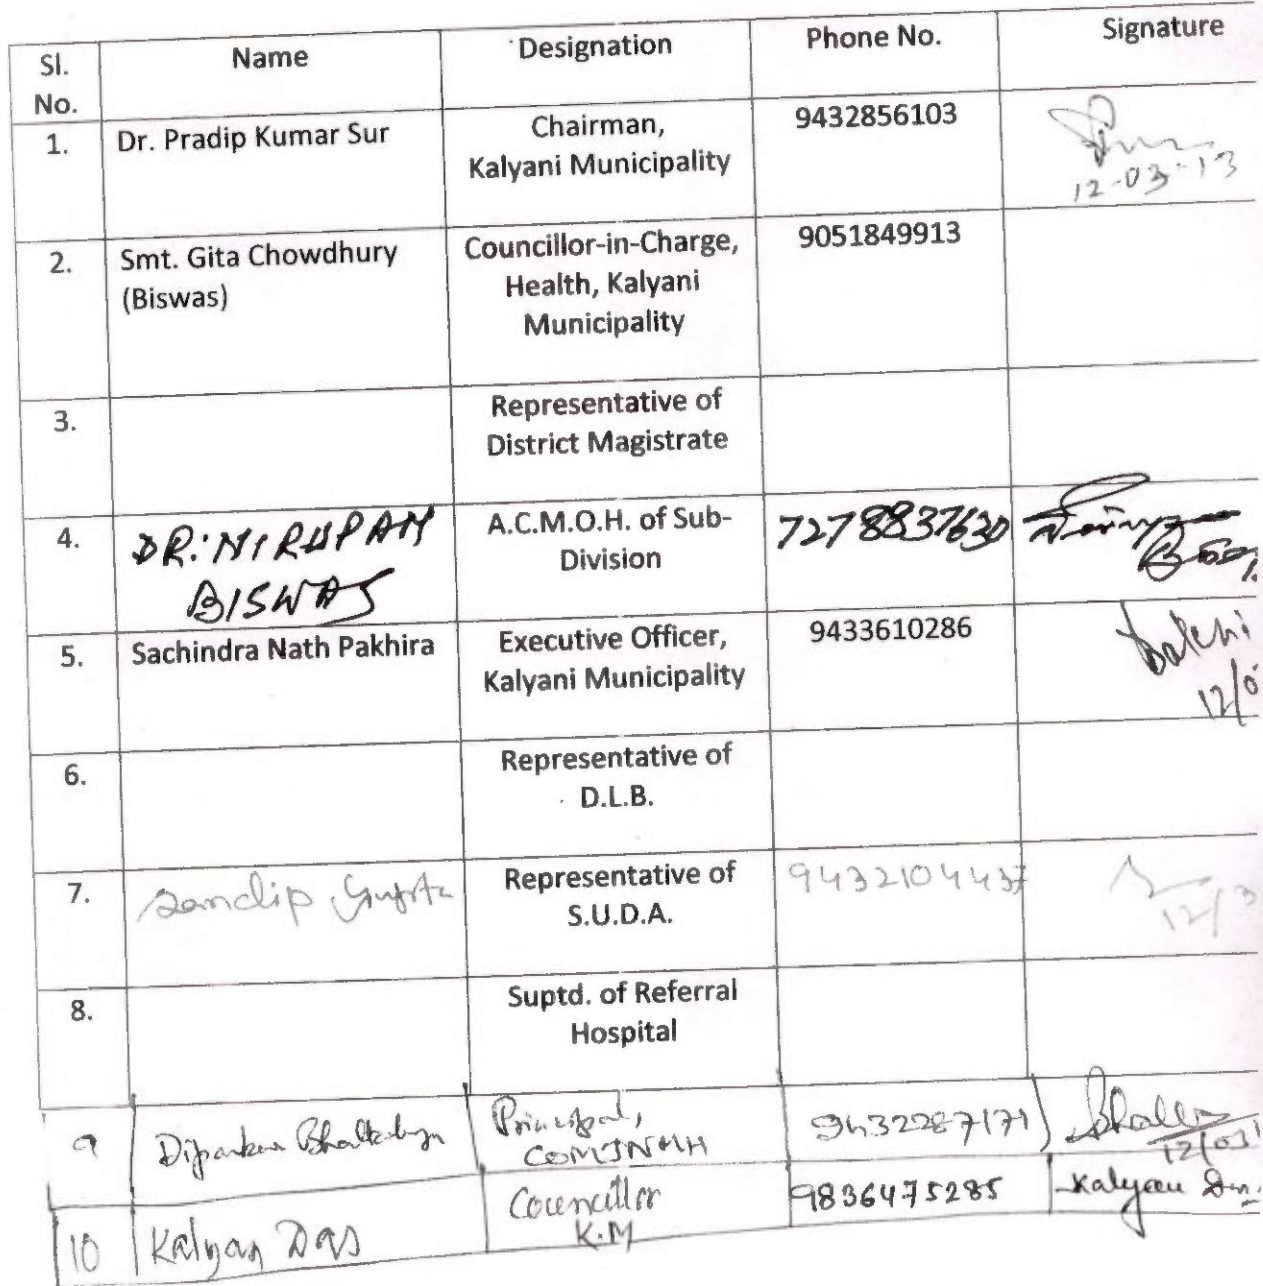 Sl.
No.
Name
Designation
Phone No.
Signature
1.
Dr. Pradip Kumar Sur
Chairman,
Kalyani Municipality
9432856103
12-03-13
2.
Smt. Gita Chowdhury
(Biswas)
Councillor-in-Charge,
Health, Kalyani
Municipality
9051849913
3.
Representative of
District Magistrate
4.
DR. NIRUPAM
BISWAS
A.C.M.O.H. of Sub-
Division
7278837630
5.
Sachindra Nath Pakhira
Executive Officer,
Kalyani Municipality
9433610286
12/0
6.
Representative of
D.L.B.
7.
Sandip Gupta
Representative of
S.U.D.A.
9432104437
12/3
8.
Suptd. of Referral
Hospital
9
Dipankar Bhattacharya
Principal,
COMJNMH
9432287171
12/03
10
Kalyan Das
Councillor
K.M
9836475285
Kalyan Das